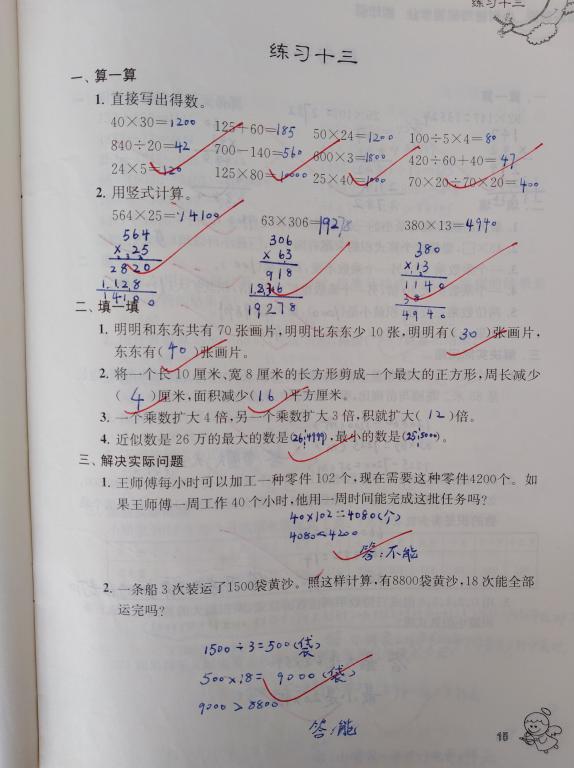 练习十三
练习十三
一、算一算
1. 直接写出得数。
40×30=1200 125+60=185 50×24=1200 100÷5×4=80
840÷20=42 700-140=560 600×3=1800 420÷60+40=47
24×5=120 125×80=10000 25×40=1000 70×20÷70×20=400
2. 用竖式计算。
564×25=14100 63×306=19278 380×13=4940
564 306 380
×25 ×63 ×13
2820 918 1140
1128 1836 38
14100 19278 4940
二、填一填
1. 明明和东东共有 70 张画片,明明比东东少 10 张,明明有( 30 )张画片,
东东有( 40 )张画片。
2. 将一个长 10 厘米、宽 8 厘米的长方形剪成一个最大的正方形,周长减少
( 4 )厘米,面积减少( 16 )平方厘米。
3. 一个乘数扩大 4 倍,另一个乘数扩大 3 倍,积就扩大( 12 )倍。
4. 近似数是 26 万的最大的数是(264999),最小的数是(255000)。
三、解决实际问题
1. 王师傅每小时可以加工一种零件 102 个,现在需要这种零件4200个。如
果王师傅一周工作 40 个小时,他用一周时间能完成这批任务吗?
40×102=4080(个)
4080<4200
答:不能
2. 一条船 3 次装运了1500袋黄沙。照这样计算,有8800袋黄沙,18 次能全部
运完吗?
1500÷3=500(袋)
500×18=9000(袋)
9000>8800
答:能
15